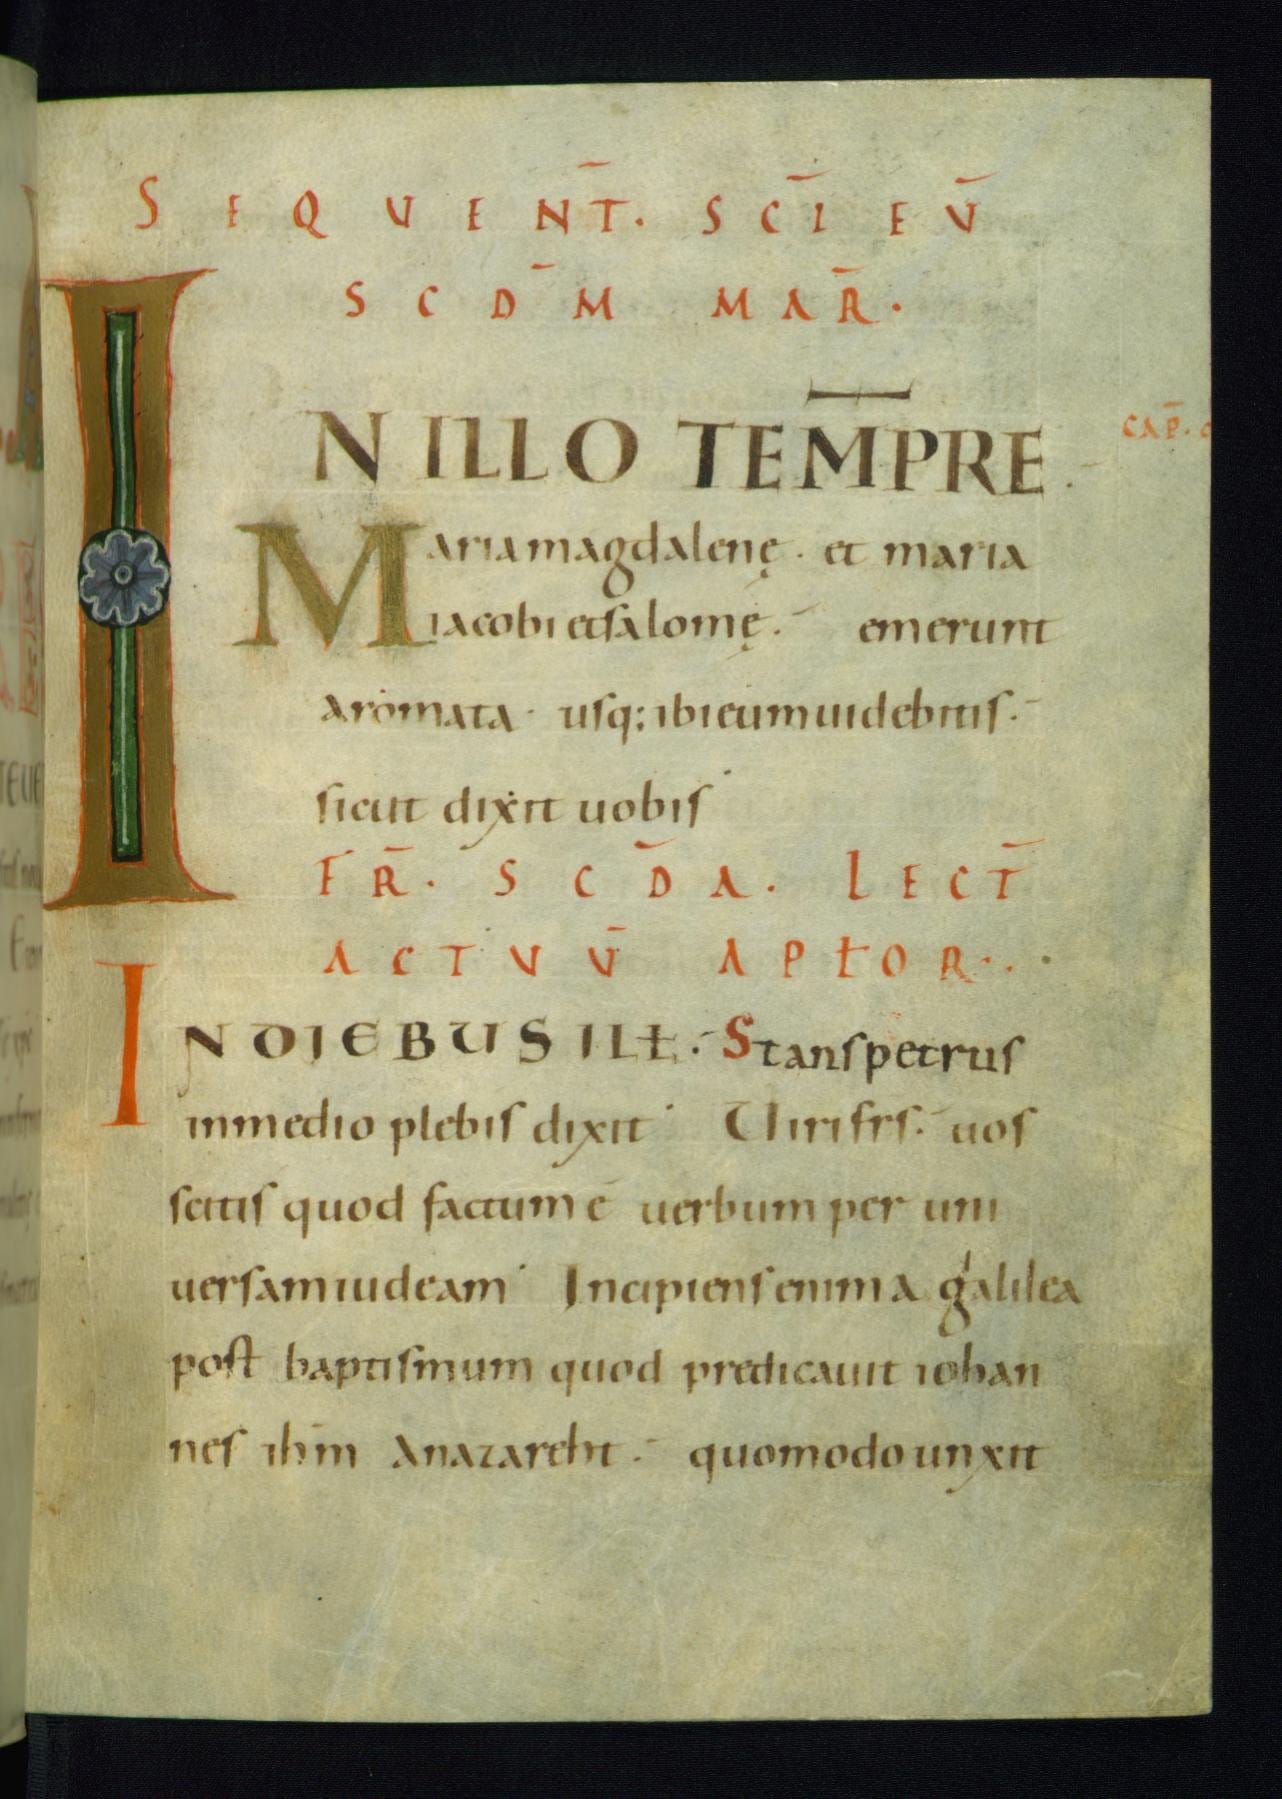 SEQUENT̄. SC̄I EV̄
SCD̄M MAR̄.
CAP̄.
IN ILLO TEM̄PRE.
Maria magdalenę. et maria
iacobi et salomę. emerunt
aromata. usq; ibi eum uidebitis.
sicut dixit uobis
FR̄. SCD̄A. LECT̄
ACTVV̄ APŁOR.
IN DIEBUS ILŁ. Stans petrus
inmedio plebis dixit Uiri frs. uos
scitis quod factum ē uerbum per uni
uersam iudeam Incipiens enim a galilea
post baptismum quod predicauit iohan
nes ihm̄ Anazareht. quomodo unxit